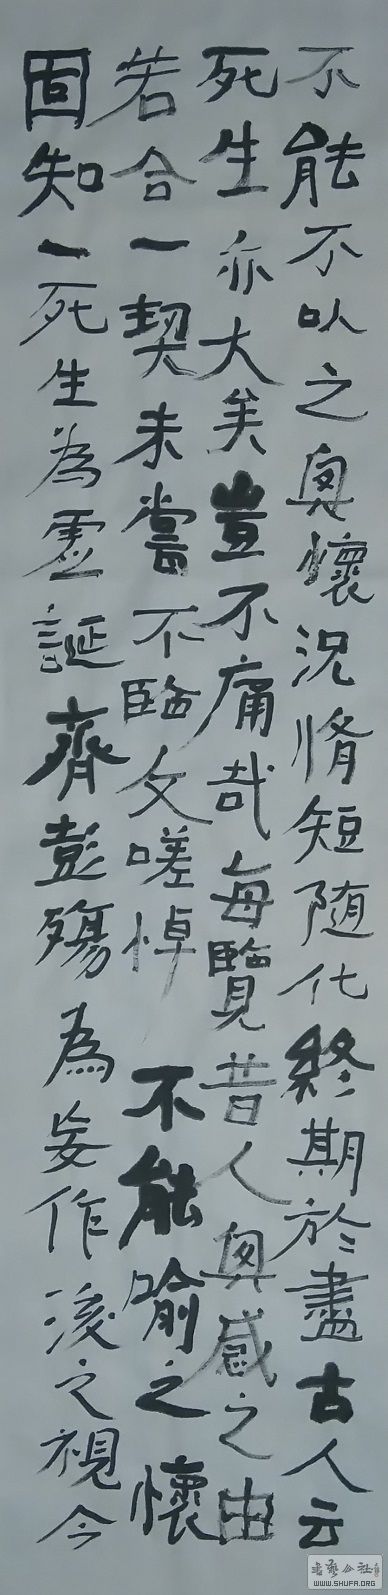 不能不以之興懷況脩短随化終期於盡古人云
死生亦大矣豈不痛哉每覽昔人興感之由
若合一契未嘗不臨文嗟悼不能喻之懷
固知一死生為虛誕齊彭殤為妄作後之視今
WWW.SHUFA.ORG